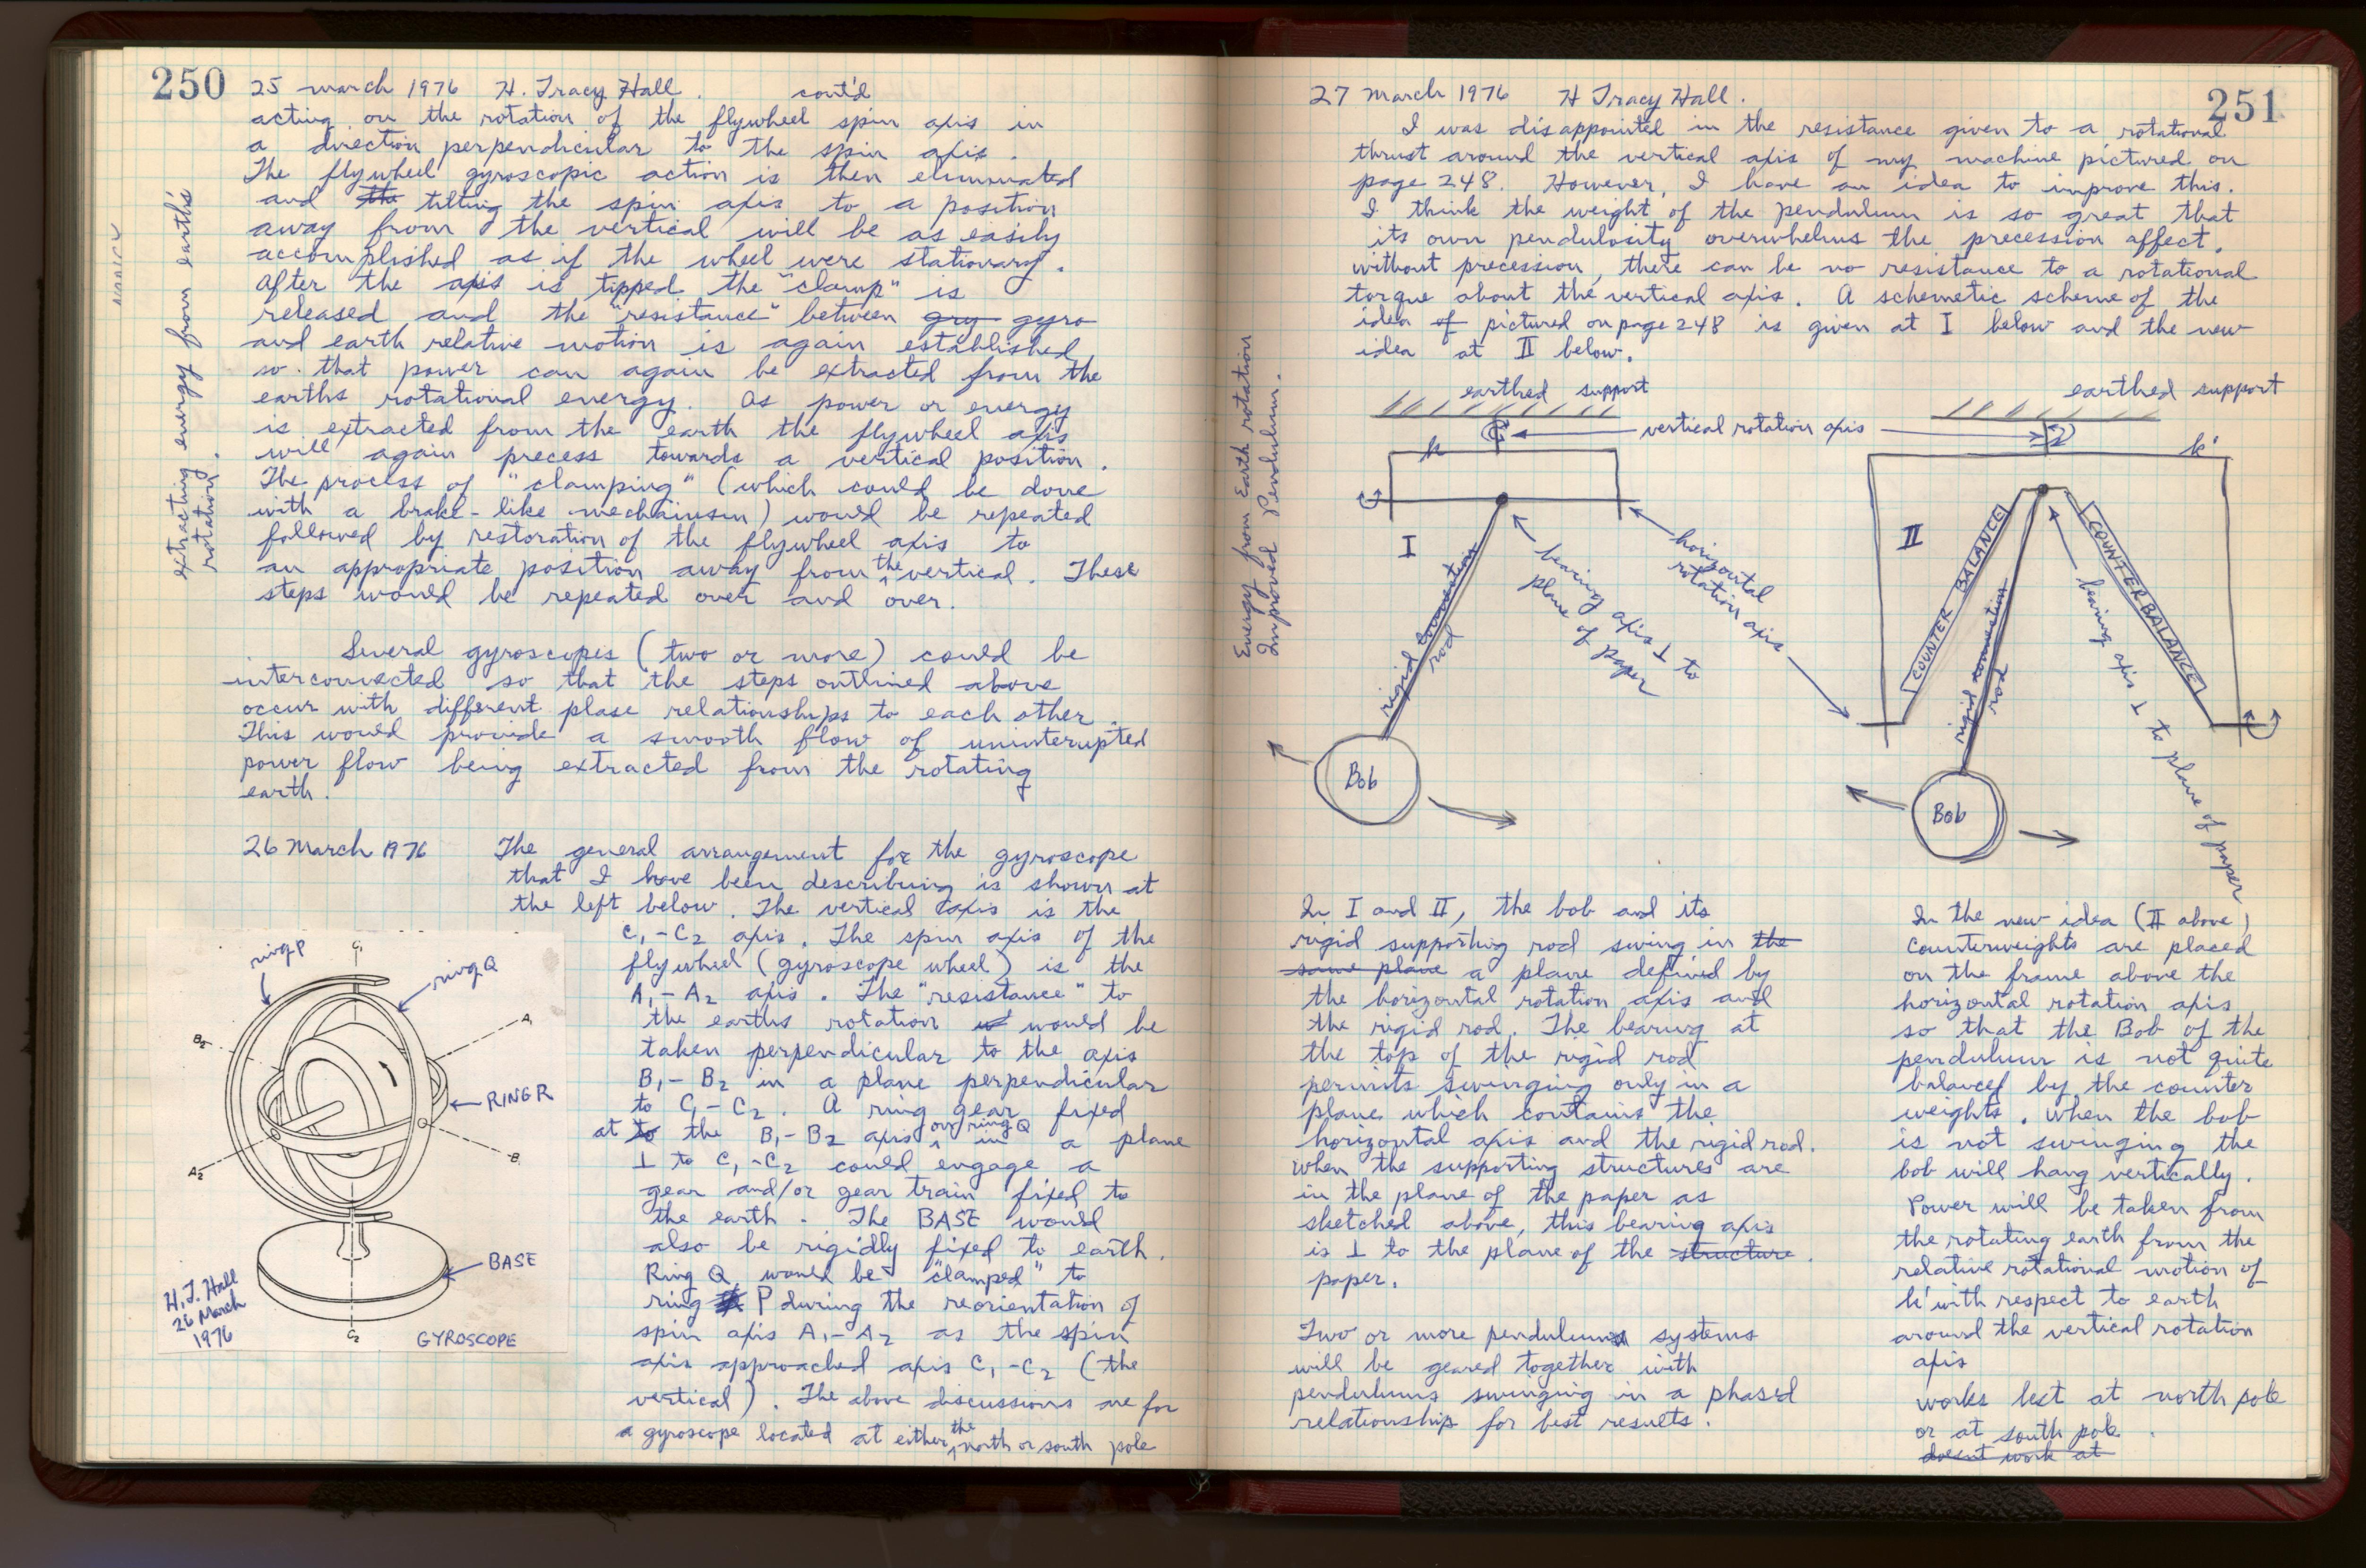 250
25 march 1976 H. Tracy Hall. cont'd
acting on the rotation of the flywheel spin axis in
a direction perpendicular to the spin axis.
The flywheel gyroscopic action is then eliminated
and the tilting the spin axis to a position
away from the vertical will be as easily
accomplished as if the wheel were stationary.
After the axis is tipped the "clamp" is
released and the "resistance" between gry gyro
and earth relative motion is again established
so that power can again be extracted from the
earths rotational energy. As power or energy
is extracted from the earth the flywheel axis
will again precess towards a vertical position.
The process of "clamping" (which could be done
with a brake-like mechainism) would be repeated
followed by restoration of the flywheel axis to
an appropriate position away from the vertical. These
steps would be repeated over and over.
extracting energy from earth's
rotation.
Several gyroscopes (two or more) could be
interconnected so that the steps outlined above
occur with different phase relationships to each other.
This would provide a smooth flow of uninterupted
power flow being extracted from the rotating
earth.
26 March 1976 The general arrangement for the gyroscope
that I have been describing is shown at
the left below. The vertical axis is the
C1-C2 axis. The spin axis of the
flywheel (gyroscope wheel) is the
A1-A2 axis. The "resistance" to
the earths rotation would be
taken perpendicular to the axis
B1-B2 in a plane perpendicular
to C1-C2. A ring gear fixed
at to the B1-B2 axis on ring Q in a plane
⊥ to C1-C2 could engage a
gear and/or gear train fixed to
the earth. The BASE would
also be rigidly fixed to earth.
Ring Q would be "clamped" to
ring P during the reorientation of
spin axis A1-A2 as the spin
axis approached axis C1-C2 (the
vertical). The above discussions are for
a gyroscope located at either the north or south pole
ring P
C1
ring Q
A1
B2
RING R
B1
A2
BASE
C2
GYROSCOPE
H.T. Hall
26 March
1976
251
27 March 1976 H Tracy Hall.
I was disappointed in the resistance given to a rotational
thrust around the vertical axis of my machine pictured on
page 248. However, I have an idea to improve this.
I think the weight of the pendulum is so great that
its own pendulosity overwhelms the precession affect.
without precession, there can be no resistance to a rotational
torque about the vertical axis. A schemetic scheme of the
idea of pictured on page 248 is given at I below and the new
idea at II below.
Energy from Earth rotation
Improved Pendulum.
earthed support
earthed support
vertical rotation axis
k
k'
I
II
horizontal
rotation axis
bearing axis ⊥ to
plane of paper
rigid connection
rod
Bob
COUNTER BALANCE
COUNTER BALANCE
rigid connection
rod
bearing axis ⊥ to plane of paper
Bob
In I and II, the bob and its
rigid supporting rod swing in the
same plane a plane defined by
the horizontal rotation axis and
the rigid rod. The bearing at
the top of the rigid rod
permits swinging only in a
plane which contains the
horizontal axis and the rigid rod.
when the supporting structures are
in the plane of the paper as
sketched above, this bearing axis
is ⊥ to the plane of the structure.
paper.
Two or more pendulum systems
will be geared together with
pendulums swinging in a phased
relationship for best results.
In the new idea (II above)
counterweights are placed
on the frame above the
horizontal rotation axis
so that the Bob of the
pendulum is not quite
balanced by the counter
weights. When the bob
is not swinging the
bob will hang vertically.
Power will be taken from
the rotating earth from the
relative rotational motion of
k' with respect to earth
around the vertical rotation
axis
works best at north pole
or at south pole.
doesnt work at